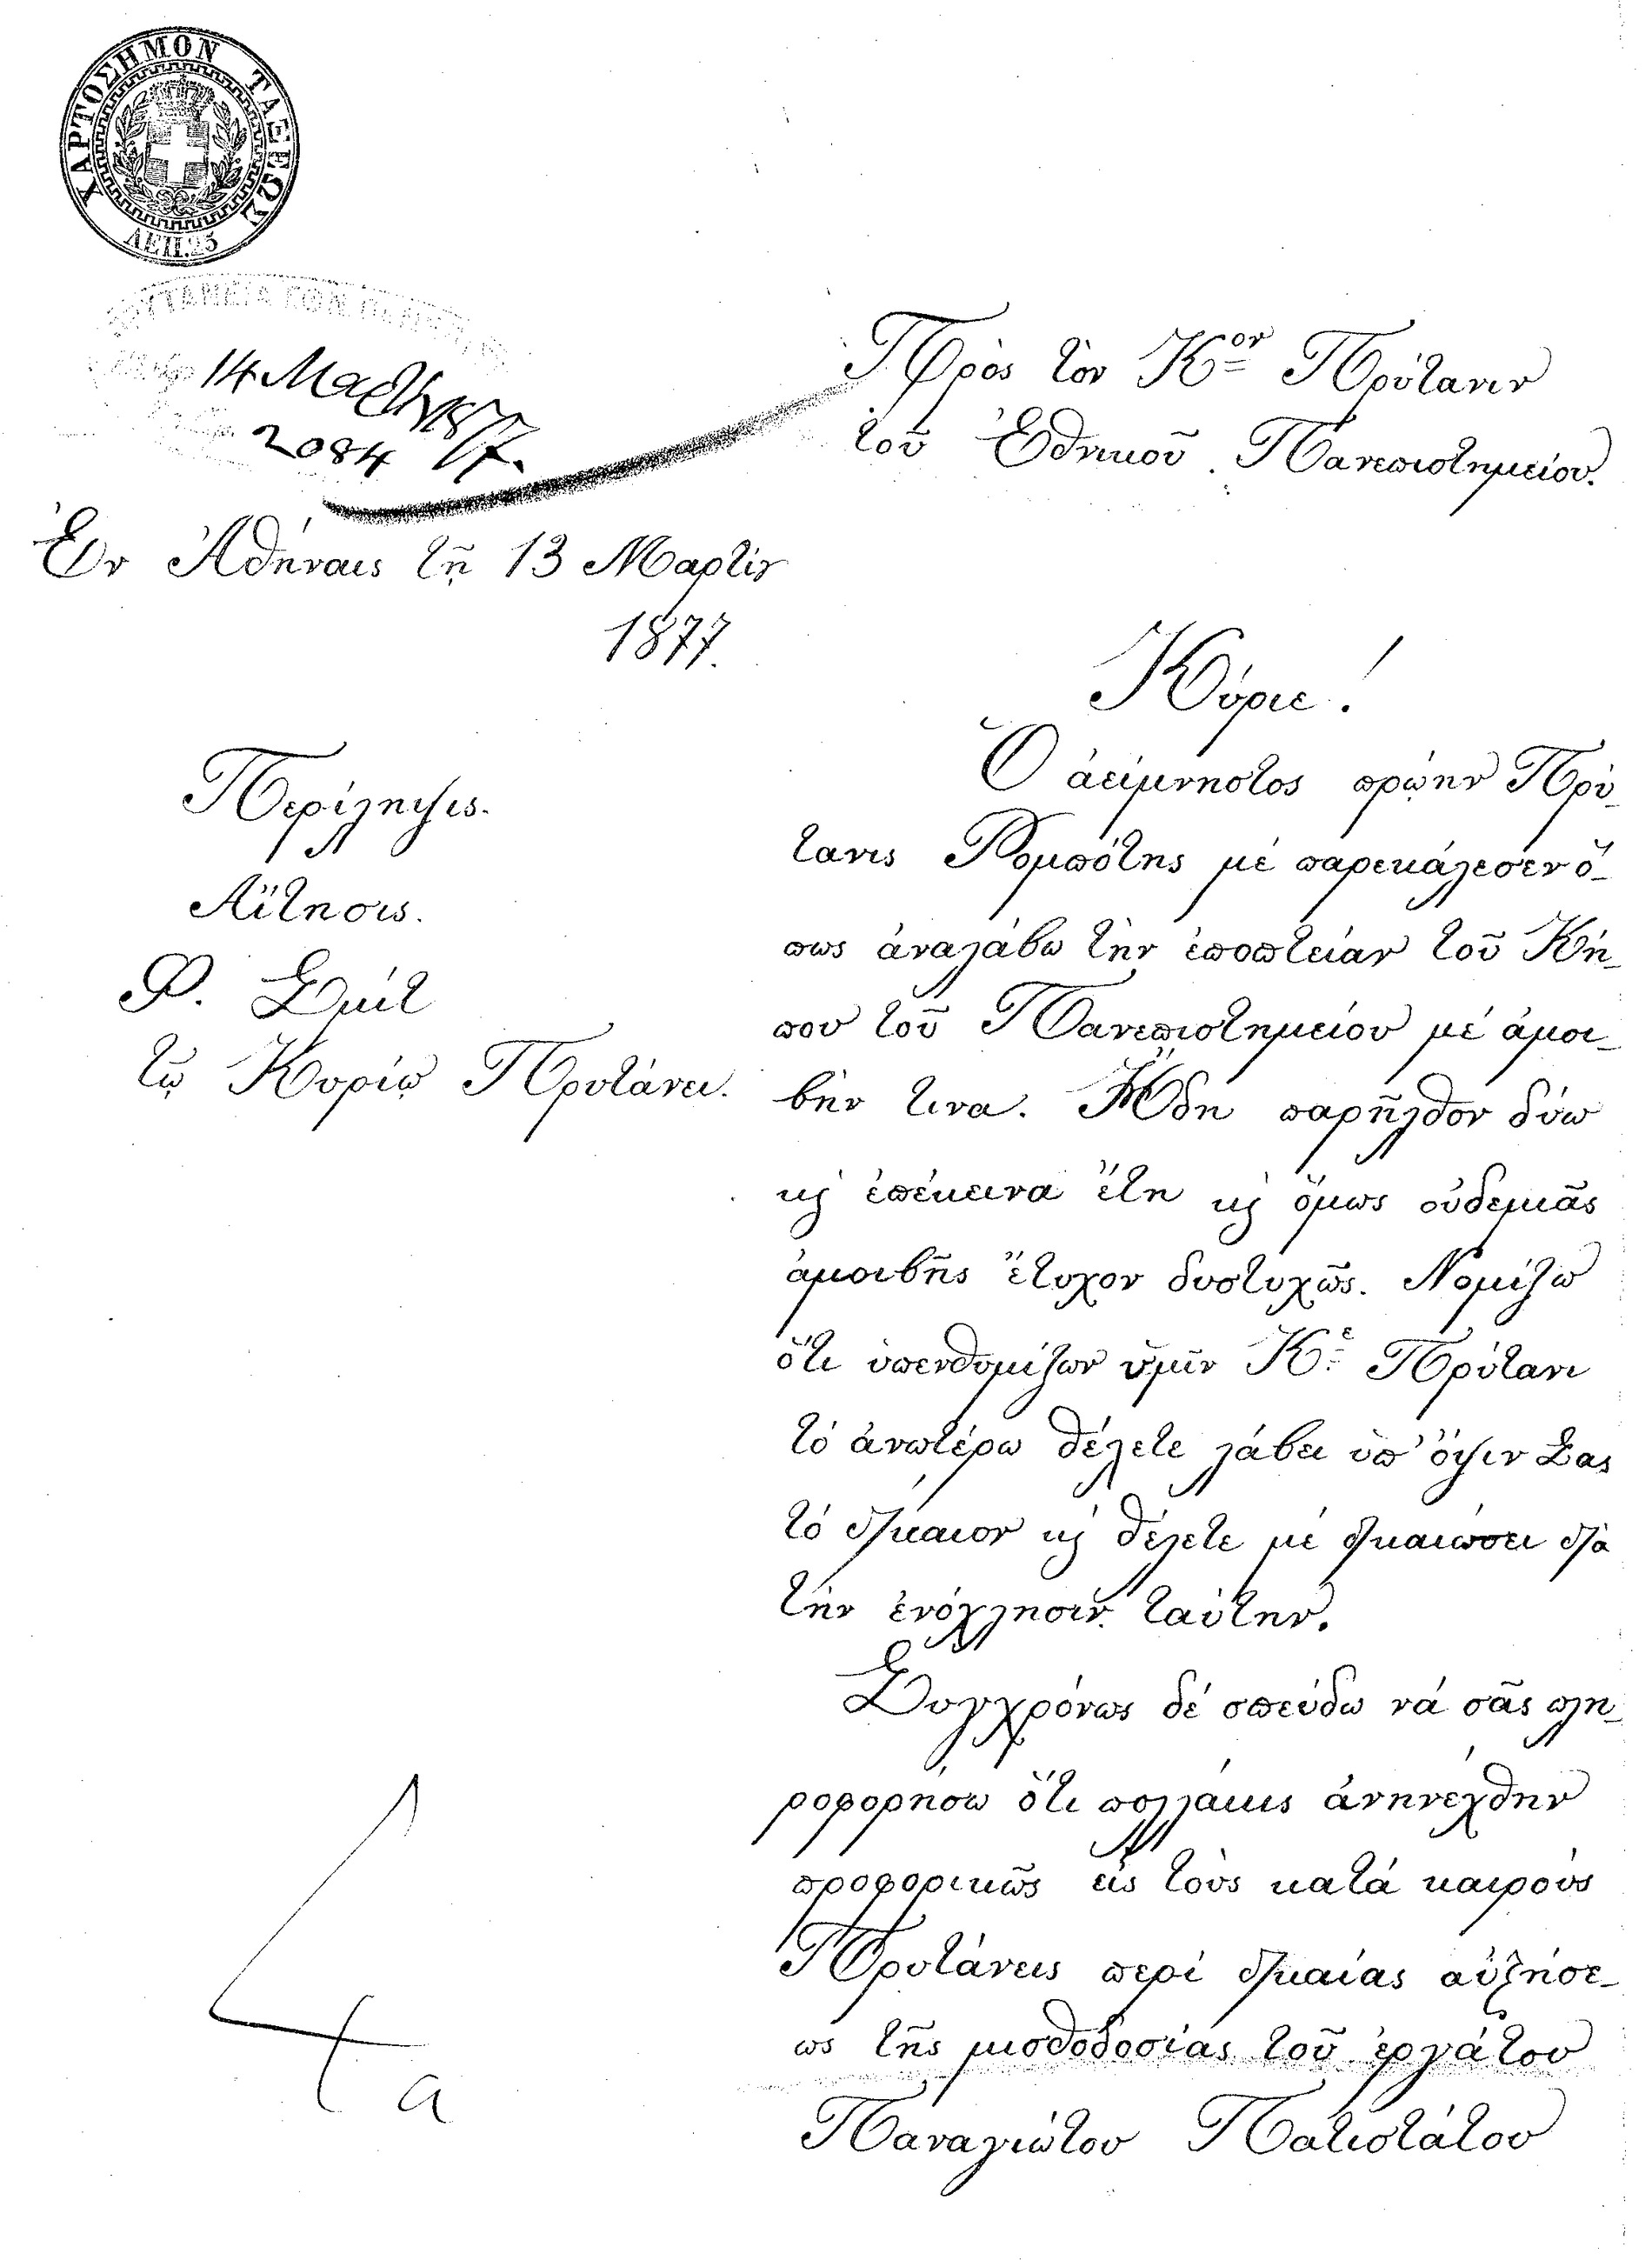 ΧΑΡΤΟΣΗΜΟΝ ΤΑΞΕΩΣ
ΛΕΠ. 25
14 Μαρτ 77.
2084
Πρὸς τὸν Κον Πρύτανιν
τοῦ Ἐθνικοῦ Πανεπιστημείου.
Ἐν Ἀθήναις τῇ 13 Μαρτίου
1877.
Περίληψις.
Αἴτησις.
Φ. Σμίτ
τῷ Κυρίῳ Πρυτάνει.
Κύριε!
Ὁ ἀείμνηστος πρῴην Πρύ-
τανις Ρομπότης μέ παρεκάλεσεν ὅ-
πως ἀναλάβω τὴν ἐποπτείαν τοῦ Κή-
που τοῦ Πανεπιστημείου μέ ἀμοι-
βήν τινα. Ἤδη παρῆλθον δύω
κῂ ἐπέκεινα ἔτη κῂ ὅμως οὐδεμιᾶς
ἀμοιβῆς ἔτυχον δυστυχῶς. Νομίζω
ὅτι ὑπενθυμίζων ὑμῖν Κε Πρύτανι
τό ἀνωτέρω θέλετε λάβει ὑπ' ὄψιν Σας
τό δίκαιον κῂ θέλετε μέ δικαιώσει διὰ
τὴν ἐνόχλησιν ταύτην.
Συγχρόνως δέ σπεύδω νά σᾶς πλη-
ροφορήσω ὅτι πολλάκις ἀνηνέχθην
προφορικῶς εἰς τοὺς κατά καιρούς
Πρυτάνεις περί δικαίας αὐξήσε-
ως τῆς μισθοδοσίας τοῦ ἐργάτου
Παναγιώτου Πατιστάτου
4 a